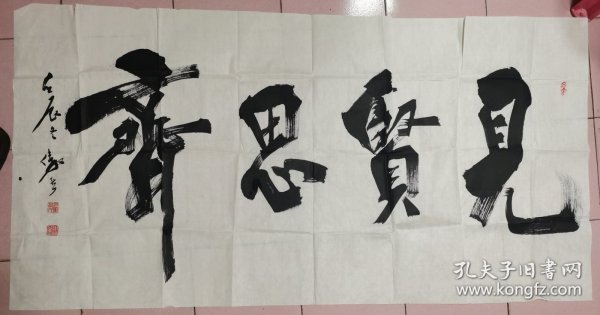 見賢思齊
壬辰冬
孔夫子旧书网
www.kongfz.com